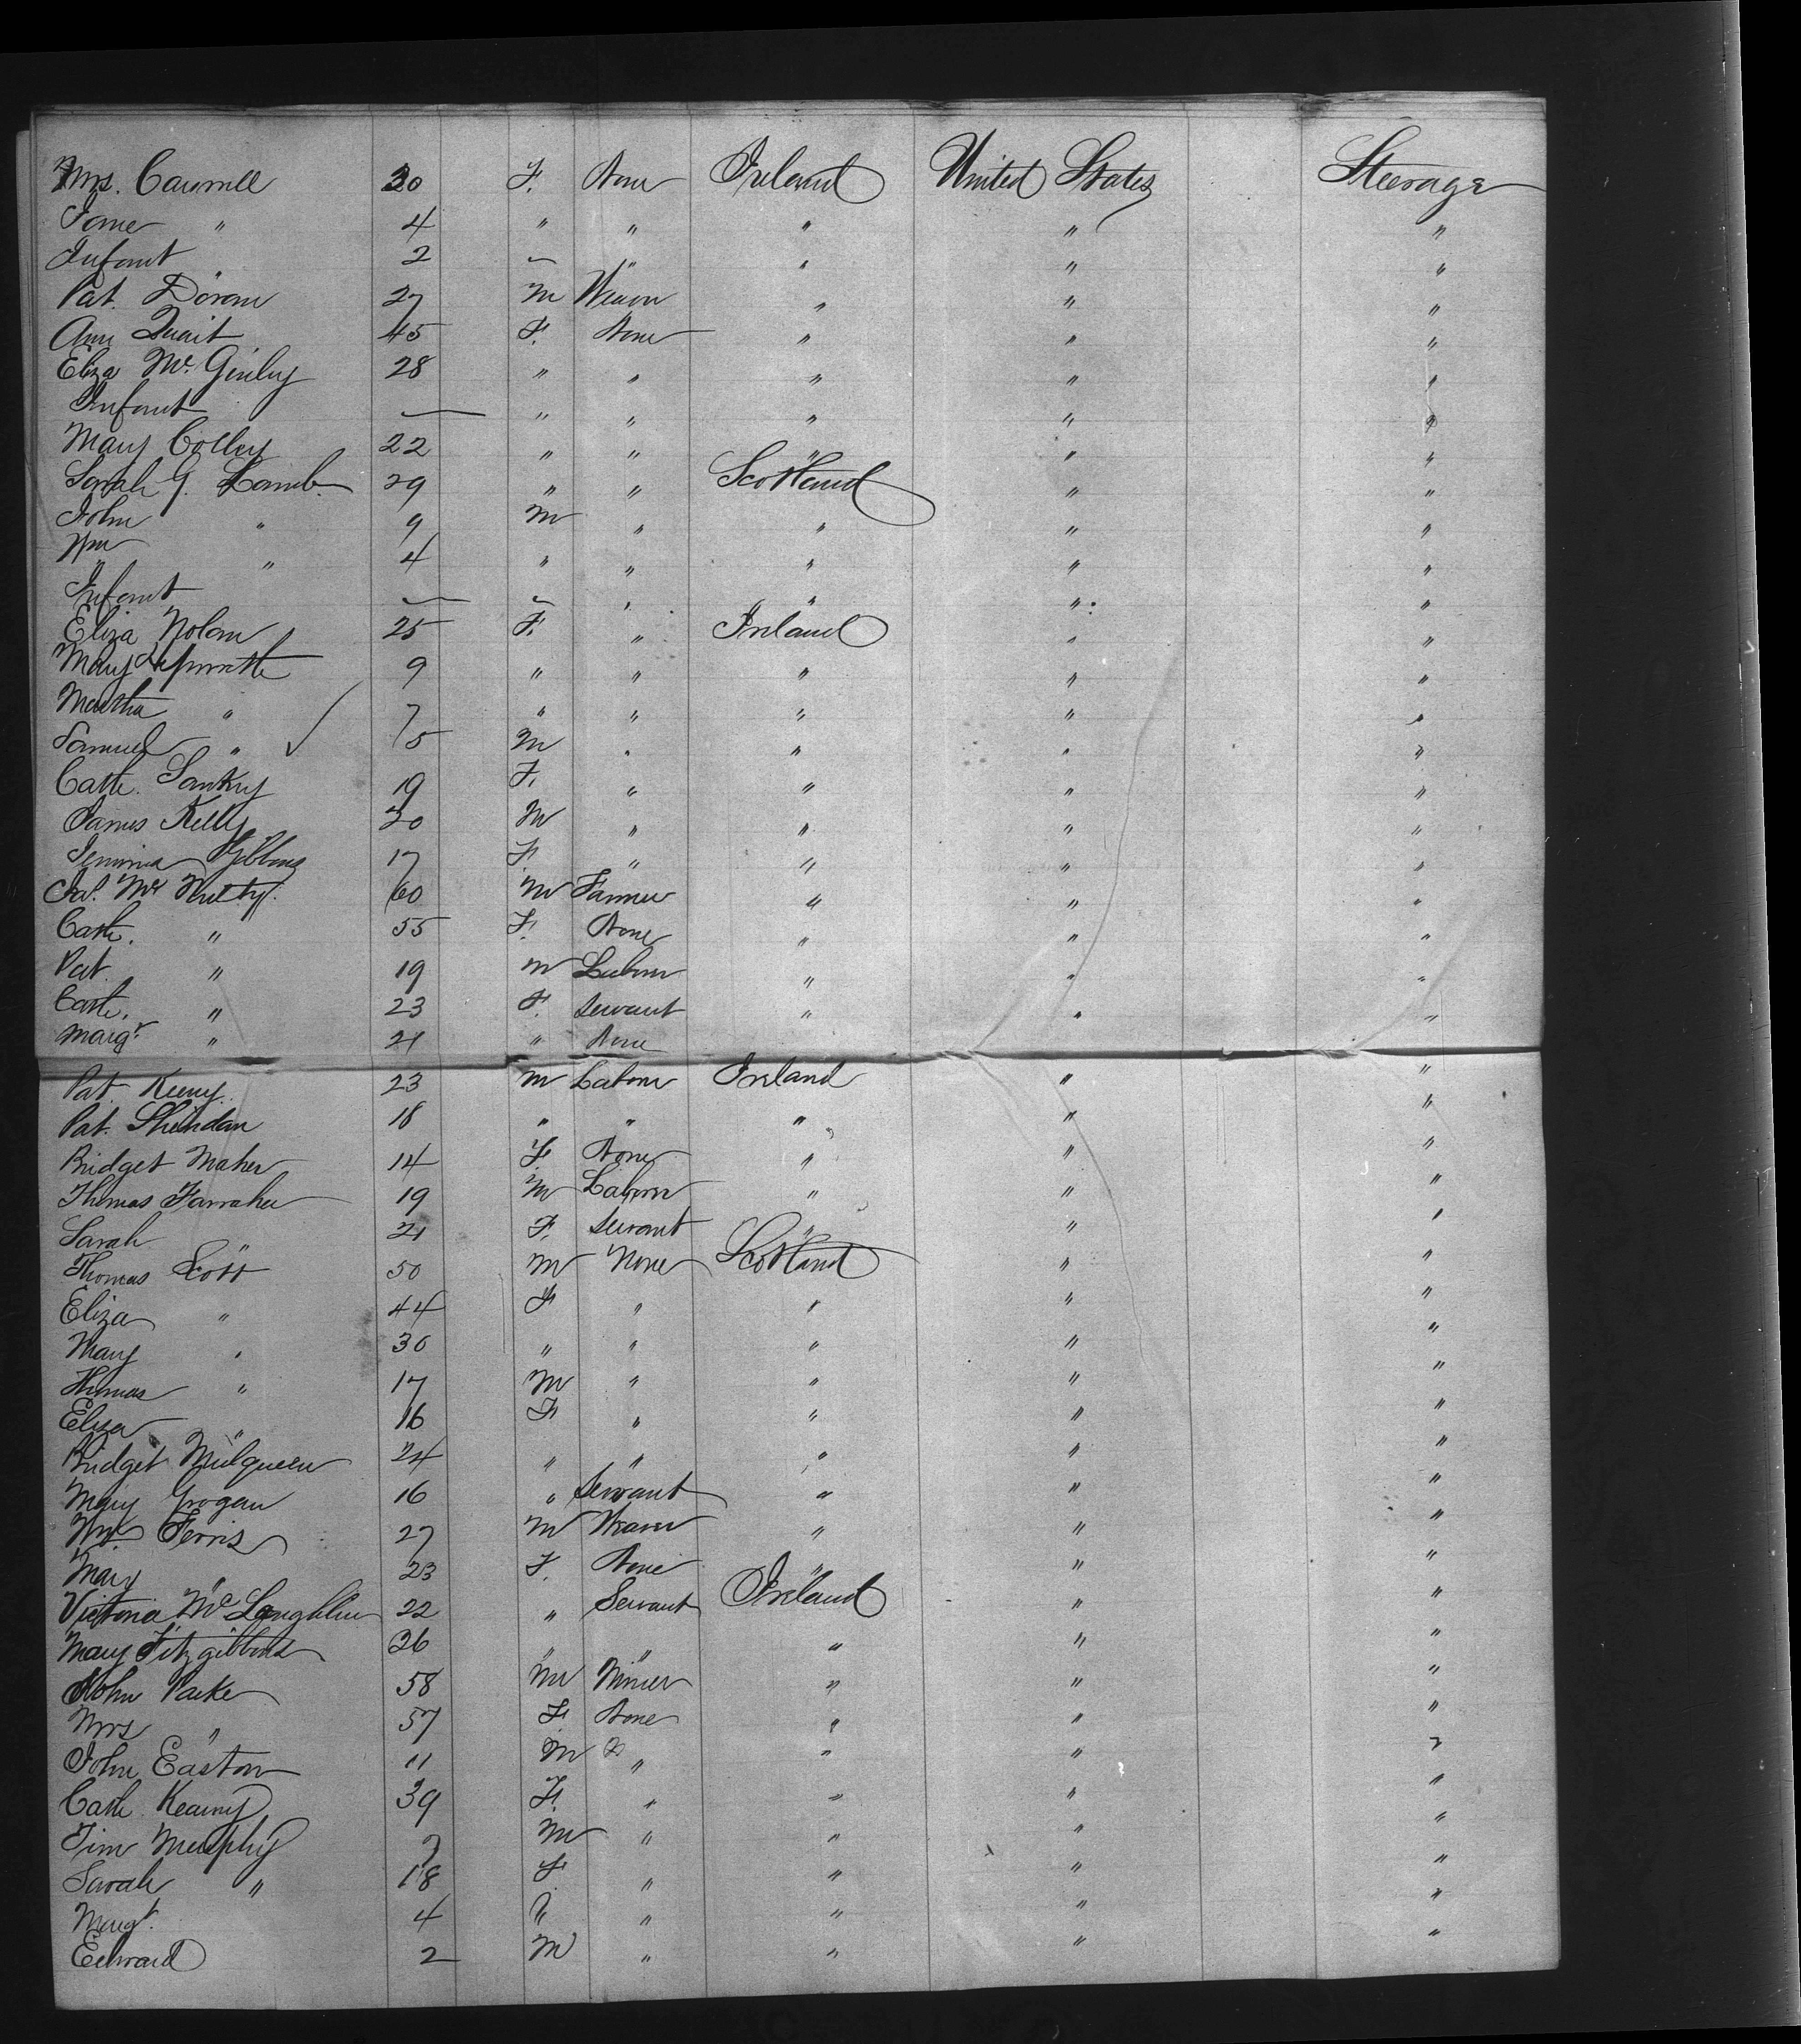 Mrs. 30 F. None Ireland United States Steerage
Jane " 4 " " " " "
Infant " 2 " " " " "
Pat. Doran 27 M Weaver " " "
Ann Quait 45 F. None " " "
Eliza Mc. Ginley 28 " " " " "
Infant — " " " " "
Mary Colley 22 " " " " "
Sarah G. Lamb 29 " " Scotland " "
John " 9 M " " " "
Wm " 4 " " " " "
Infant — " " " " "
Eliza Nolan 25 F. " Ireland " "
Mary 9 " " " " "
Martha " 7 " " " " "
Samuel " ✓ 5 M " " " "
Cath. Sankey 19 F. " " " "
James Kelly 30 M " " " "
Jemima Gibbons 17 F. " " " "
Jas. Mc Nulty 60 M Farmer " " "
Cath. " 55 F. None " " "
Pat. " 19 M Labour " " "
Cath. " 23 F. Servant " " "
Margt " 21 " None
Pat. Keeny. 23 M Labour Ireland " "
Pat. Sheridan 18 " " " " "
Bridget Maher 14 F. None " " "
Thomas Farraher 19 M Labour " " "
Sarah " 21 F. Servant " " "
Thomas Scott 50 M None Scotland " "
Eliza " 44 F " " " "
Mary " 30 " " " " "
Thomas " 17 M " " " "
Eliza " 16 F " " " "
Bridget Mulqueen 24 " " " " "
Mary Grogan 16 " Servant " " "
Wm Ferris 27 M Weaver " " "
Mary " 23 F. None " " "
Victoria Mc Loughlin 22 " Servant Ireland " "
Mary Fitzgibbons 26 " " " " "
John Parke 58 M Miner " " "
Mrs " 57 F. None " " "
John Easton 11 M " " " "
Cath Kearny 39 F. " " " "
Tim Murphy 7 M " " " "
Sarah " 18 F. " " " "
Margt. 4 " " " " "
Edward 2 M " " " "